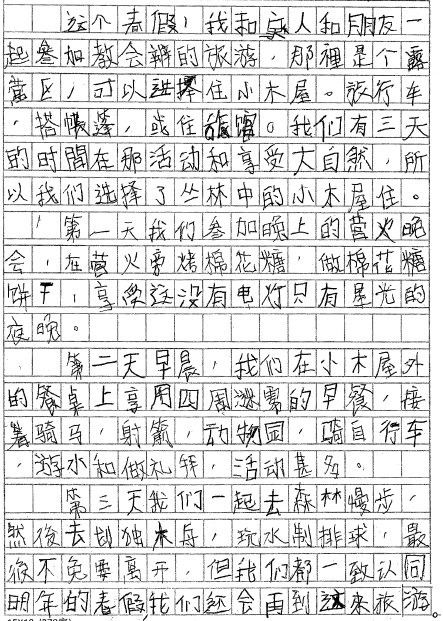 这个春假,我和家人和朋友一
起參加教会辦的旅游,那裡是个露
营区,可以选择住小木屋。旅行车
,搭帳篷,或住旅館。我们有三天
的时間在那活动和享受大自然,所
以我们选择了丛林中的小木屋住。
第一天我们參加晚上的营火晚
会,在营火旁烤棉花糖,做棉花糖
饼干,享受这没有电灯只有星光的
夜晚。
第二天早晨,我们在小木屋外
的餐桌上享用四周的早餐,接
著骑马,射箭,动物园,骑自行车
,游水和做礼拜,活动甚多。
第三天我们一起去森林慢步,
然後去划独木舟,玩水制排球,最
後不免要离开,但我们都一致认同
明年的春假我们还会再到这来旅游。